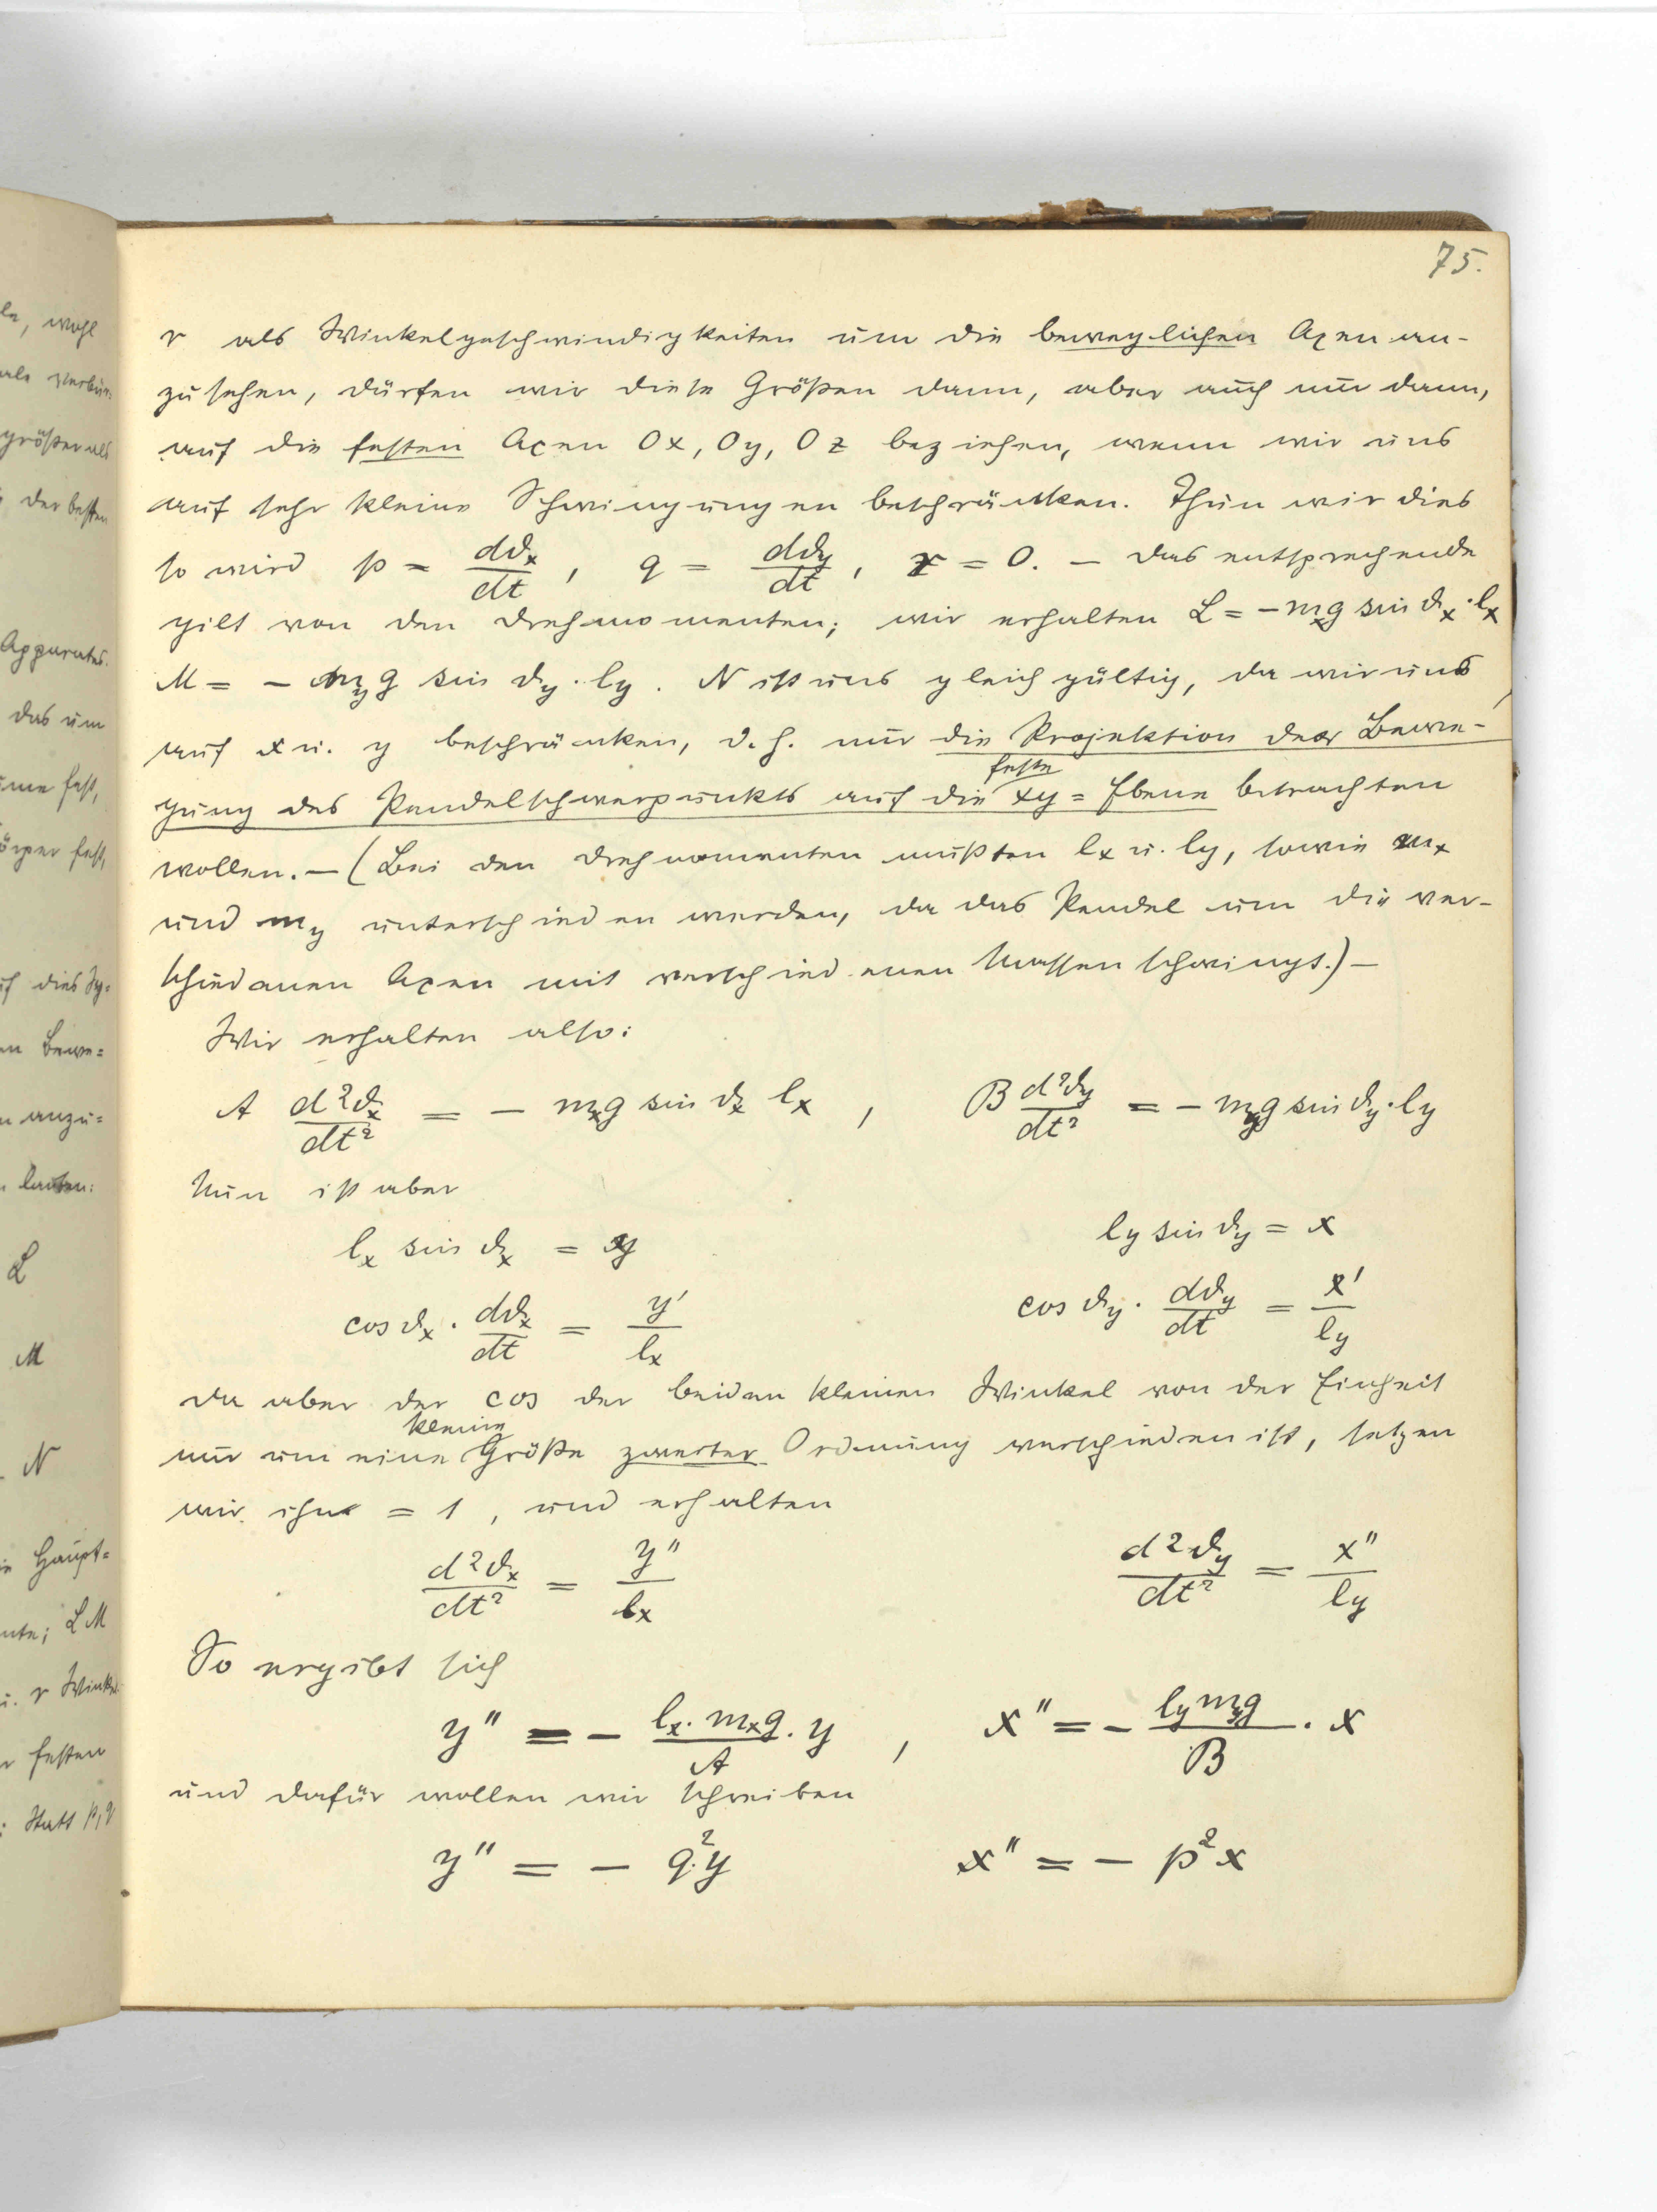 75.
r als Winkelgeschwindigkeiten um die beweglichen Axen an-
zusehen, dürfen wir diese Größen dann, aber auch nur dann,
auf die festen Axen Ox, Oy, Oz beziehen, wenn wir uns
auf sehr kleine Schwingungen beschränken. Thun wir dies
so wird p = dϑₓ/dt, q = dϑ_y/dt, r = 0. — Das entsprechende
gilt von den Drehmomenten; wir erhalten L = −mₓg sin ϑₓ·lₓ
M = − m_y g sin ϑ_y·l_y. N ist uns gleichgültig, da wir uns,
auf x u. y beschränken, d.h. nur die Projektion der Bewe-
feste
gung des Pendelschwerpunkts auf die xy=Ebene betrachten
wollen. — (Bei den Drehmomenten mußten lₓ u. l_y, sowie mₓ
und m_y unterschieden werden, da das Pendel um die ver-
schiedenen Axen mit verschiedenen Massen schwingt.) —
Wir erhalten also:
A d²ϑₓ/dt² = − mₓg sin ϑₓ lₓ , B d²ϑ_y/dt² = − m_y g sin ϑ_y·l_y
Nun ist aber
lₓ sin ϑₓ = y l_y sin ϑ_y = x
cos ϑₓ · dϑₓ/dt = y′/lₓ cos ϑ_y · dϑ_y/dt = x′/l_y
Da aber der cos der beiden kleinen Winkel von der Einheit
kleine
nur um eine Größe zweiter Ordnung verschieden ist, setzen
wir ihn = 1, und erhalten
d²ϑₓ/dt² = y″/lₓ d²ϑ_y/dt² = x″/l_y
So ergibt sich
y″ = − lₓ·mₓg/A · y , x″ = − l_y m_y g/B · x
und dafür wollen wir schreiben
y″ = − q²·y x″ = − p²x
le, wohl
als Verbin-
größer als
der besten
Apparates.
das um
fest,
örper fest,
uf dies Sy=
en Bewe=
n anzu=
lauten:
L
M
N
Haupt=
nte; L M
u. r Wink
r festen
: Statt p, q